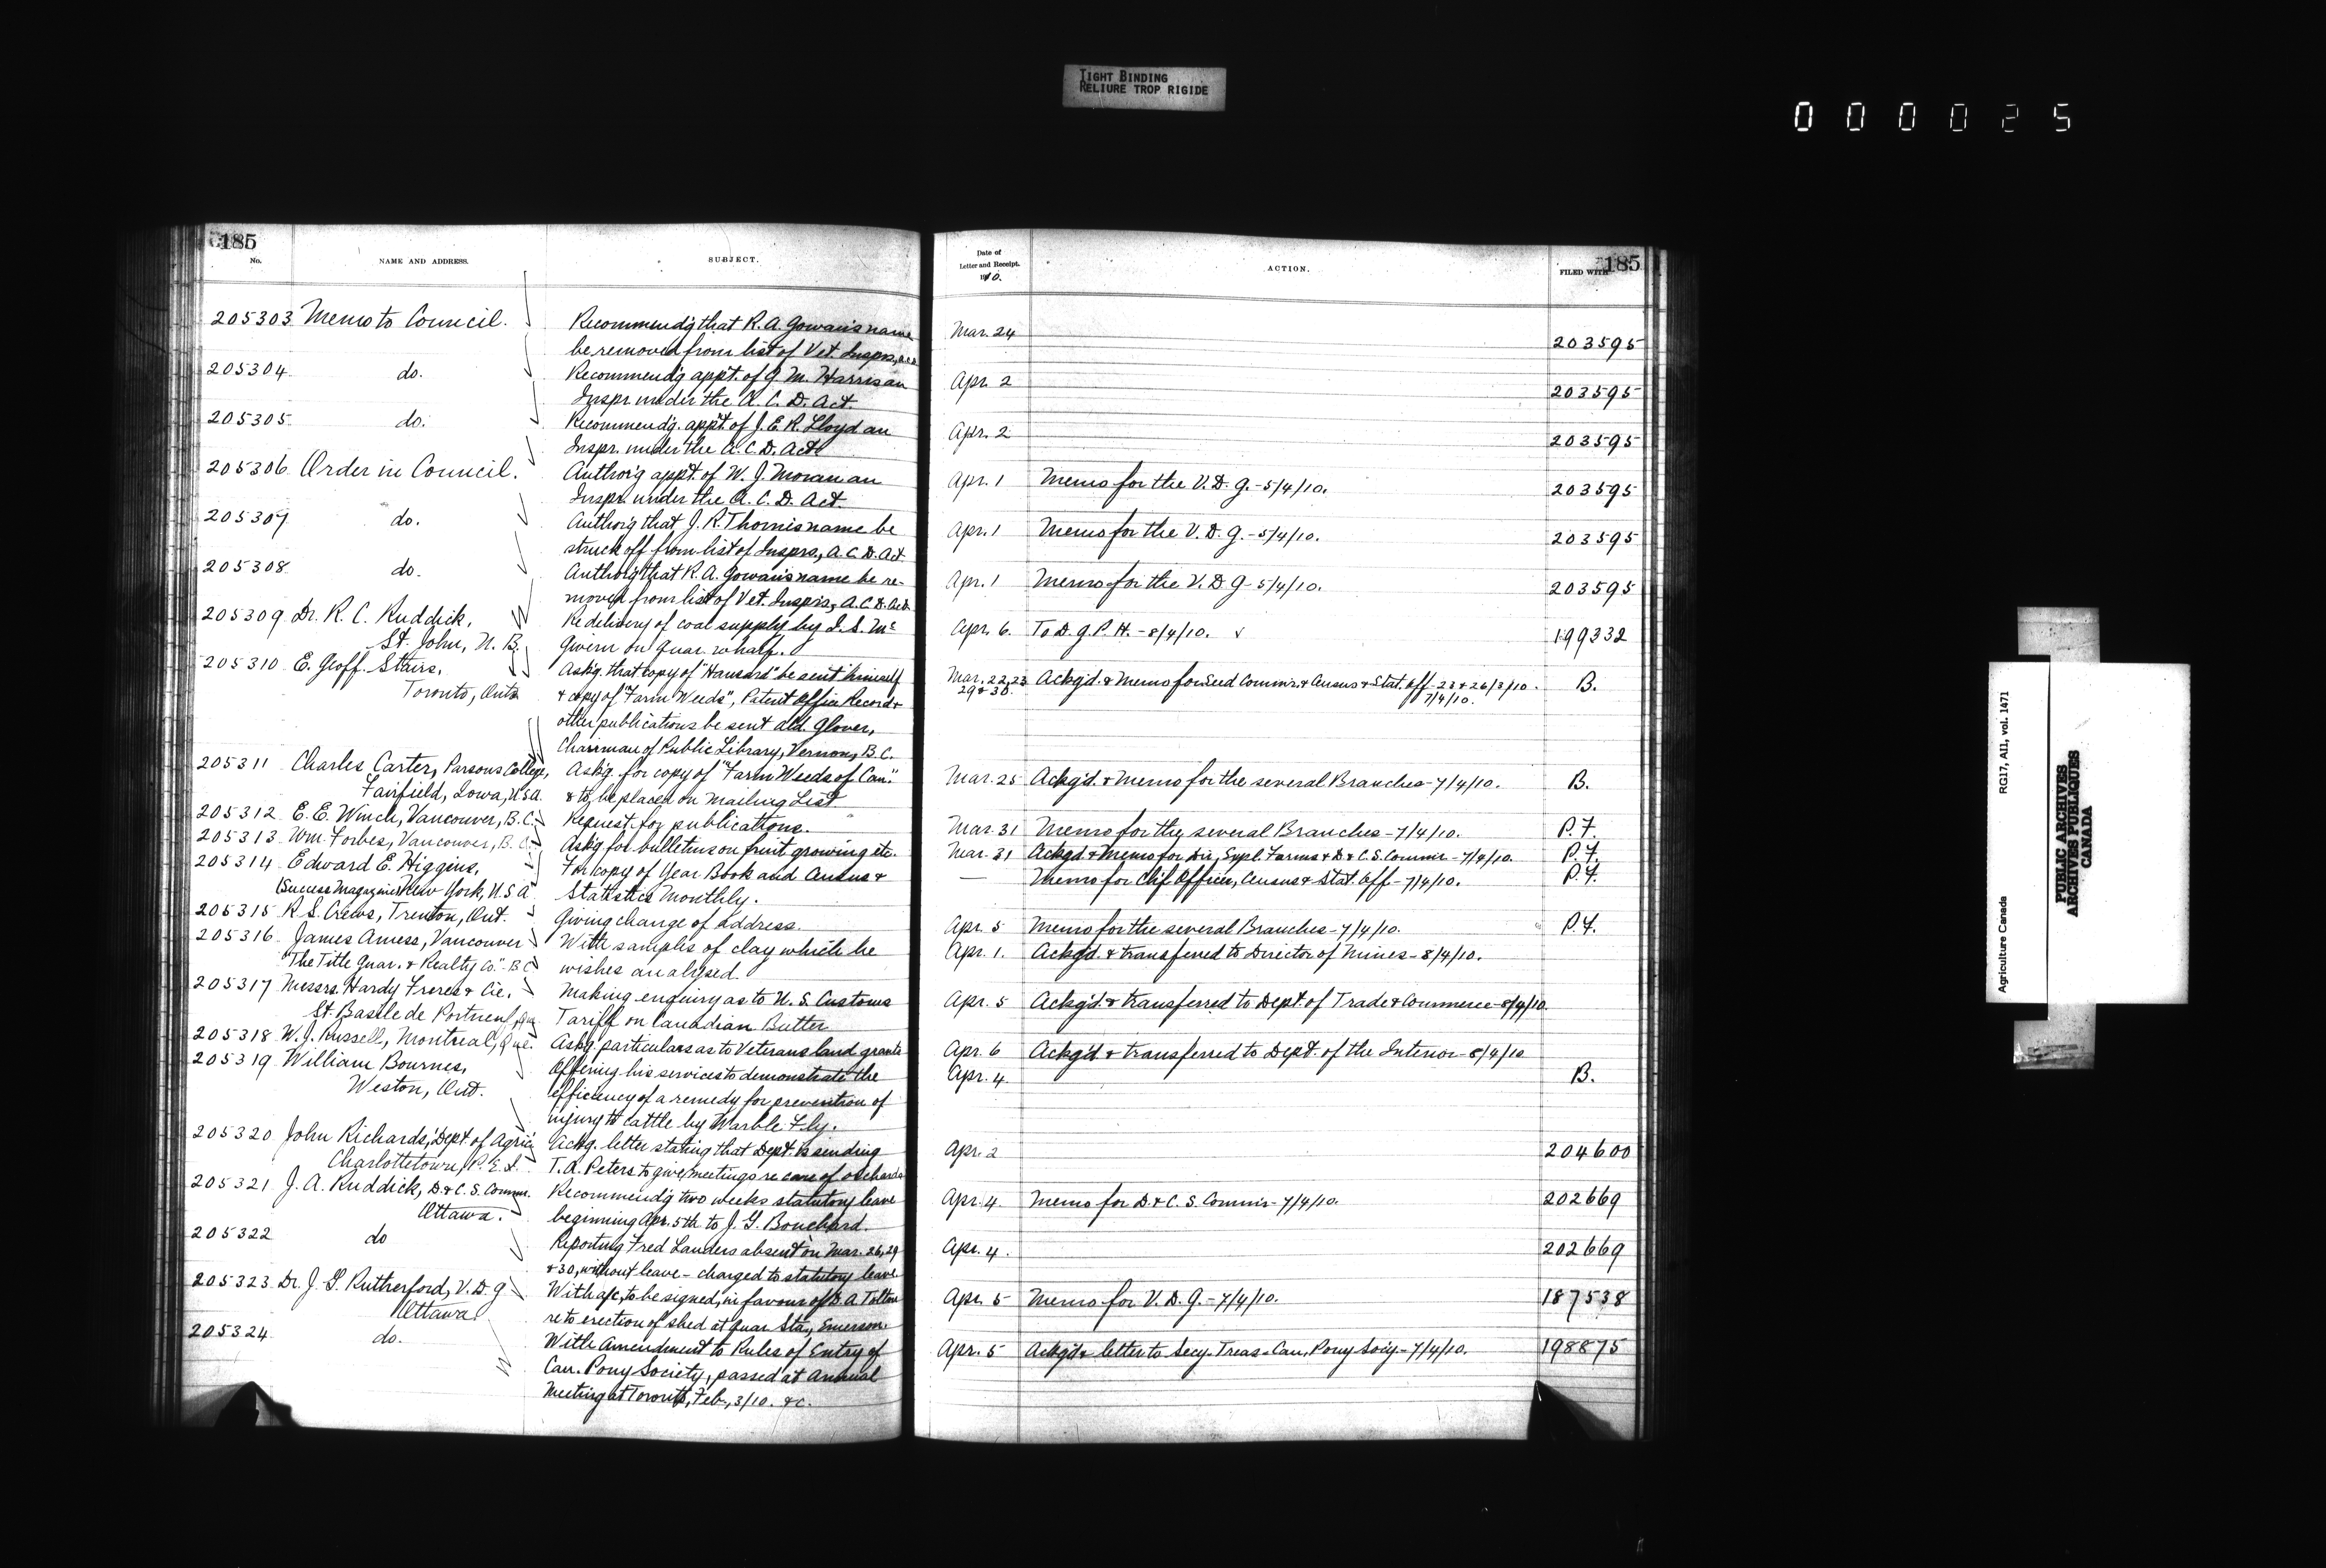 TIGHT BINDING
RELIURE TROP RIGIDE
000025
185
No.
NAME AND ADDRESS.
SUBJECT.
205303 Memo to Council.
Recommend'g that R. A. Gowan's name
be removed from list of Vet. Insprs,
205304 do.
Recommend'g appt. of J. M. Harris an
Inspr. under the A. C. D. Act.
205305 do.
Recommend'g. appt. of J. E. R. Lloyd an
Inspr. under the A. C. D. Act.
205306 Order in Council.
Author'g appt. of W. J. Moran an
Inspr. under the A. C. D. Act.
205307 do.
Author'g that J. R. Thorn's name be
struck off from list of Insprs, A. C. D. Act
205308 do.
Author'g that R. A. Gowan's name be re-
moved from list of Vet. Insprs, A. C. D. Act.
205309 Dr. R. C. Ruddick,
St. John, N. B.
Re delivery of coal supply by J. S. Mc
Givern on Quar. wharf.
205310 E. Geoff. Stairs,
Toronto, Ont.
Ask'g. that copy of "Hansard" be sent himself
& copy of "Farm Weeds", Patent Office Record &
other publications be sent Ald. Glover,
Chairman of Public Library, Vernon, B. C.
205311 Charles Carter, Parsons College,
Fairfield, Iowa, U.S.A.
Ask'g. for copy of "Farm Weeds of Can."
& to be placed on Mailing List
205312 E. E. Winch, Vancouver, B. C.
Request for publications.
205313 Wm. Forbes, Vancouver, B. C.
Ask'g for bulletins on fruit growing etc.
205314 Edward E. Higgins,
(Success Magazine) New York, U. S. A.
For copy of Year Book and Census &
Statistics Monthly.
205315 R. S. Crews, Trenton, Ont.
Giving change of address.
205316 James Amess, Vancouver
"The Title Guar. & Realty Co." B C
With samples of clay which he
wishes analysed.
205317 Messrs. Hardy Freres & Cie.
St. Basile de Portneuf, Que
Making enquiry as to U. S. Customs
Tariff on Canadian Butter
205318 W. J. Russell, Montreal, Que.
Ask'g. particulars as to Veterans land grants
205319 William Bournes,
Weston, Ont.
Offering his services to demonstrate the
efficiency of a remedy for prevention of
injury to cattle by Warble Fly.
205320 John Richards, Dept. of Agric.
Charlottetown, P. E. I.
Ack'g. letter stating that Dept. is sending
T. A. Peters to give meetings re care of orchards
205321 J. A. Ruddick, D. & C. S. Commr.
Ottawa.
Recommend'g two weeks statutory leave
beginning Apr. 5th to J. G. Bouchard.
205322 do
Reporting Fred Landers absent on Mar. 26, 29
& 30, without leave - charged to statutory leave
205323 Dr. J. G. Rutherford, V. D. G
Ottawa
With a/c, to be signed, in favour of D. A. Tolton
re to erection of shed at Quar. Sta., Emerson.
205324 do.
With Amendment to Rules of Entry of
Can. Pony Society, passed at Annual
Meeting at Toronto, Feb., 3/10. &c.
Date of
Letter and Receipt.
1910.
ACTION.
FILED WITH
185
Mar. 24 203595
Apr. 2 203595
Apr. 2 203595
Apr. 1 Memo for the V. D. G. - 5/4/10. 203595
Apr. 1 Memo for the V. D. G. - 5/4/10. 203595
Apr. 1 Memo for the V. D. G - 5/4/10. 203595
Apr. 6. To D. G. P. H. - 8/4/10. 199332
Mar. 22, 23 Ackg'd. & Memo for Seed Commr. & Census & Stat. Off - 23 & 26/3/10. B.
29 & 30. 7/4/10.
Mar. 25 Ackg'd. & Memo for the several Branches - 7/4/10. B.
Mar. 31 Memo for the several Branches - 7/4/10. P. F.
Mar. 31 Ackg'd & Memo for Dir., Expl. Farms & D. & C. S. Commr - 7/4/10. P. F.
— Memo for Chf. Officer, Census & Stat. Off - 7/4/10. P. F.
Apr. 5 Memo for the several Branches - 7/4/10. P. F.
Apr. 1. Ackg'd. & transferred to Director of Mines - 8/4/10.
Apr. 5 Ackg'd. & transferred to Dept. of Trade & Commerce - 8/4/10.
Apr. 6 Ackg'd. & transferred to Dept. of the Interior - 8/4/10
Apr. 4. B.
Apr. 2 204600
Apr. 4. Memo for D. & C. S. Commr - 7/4/10. 202669
Apr. 4. 202669
Apr. 5 Memo for V. D. G. - 7/4/10. 187538
Apr. 5 Ackg'd & letter to Secy. Treas - Can. Pony Soc'y - 7/4/10. 198875
Agriculture Canada RG17, AII, vol. 1471
PUBLIC ARCHIVES
ARCHIVES PUBLIQUES
CANADA